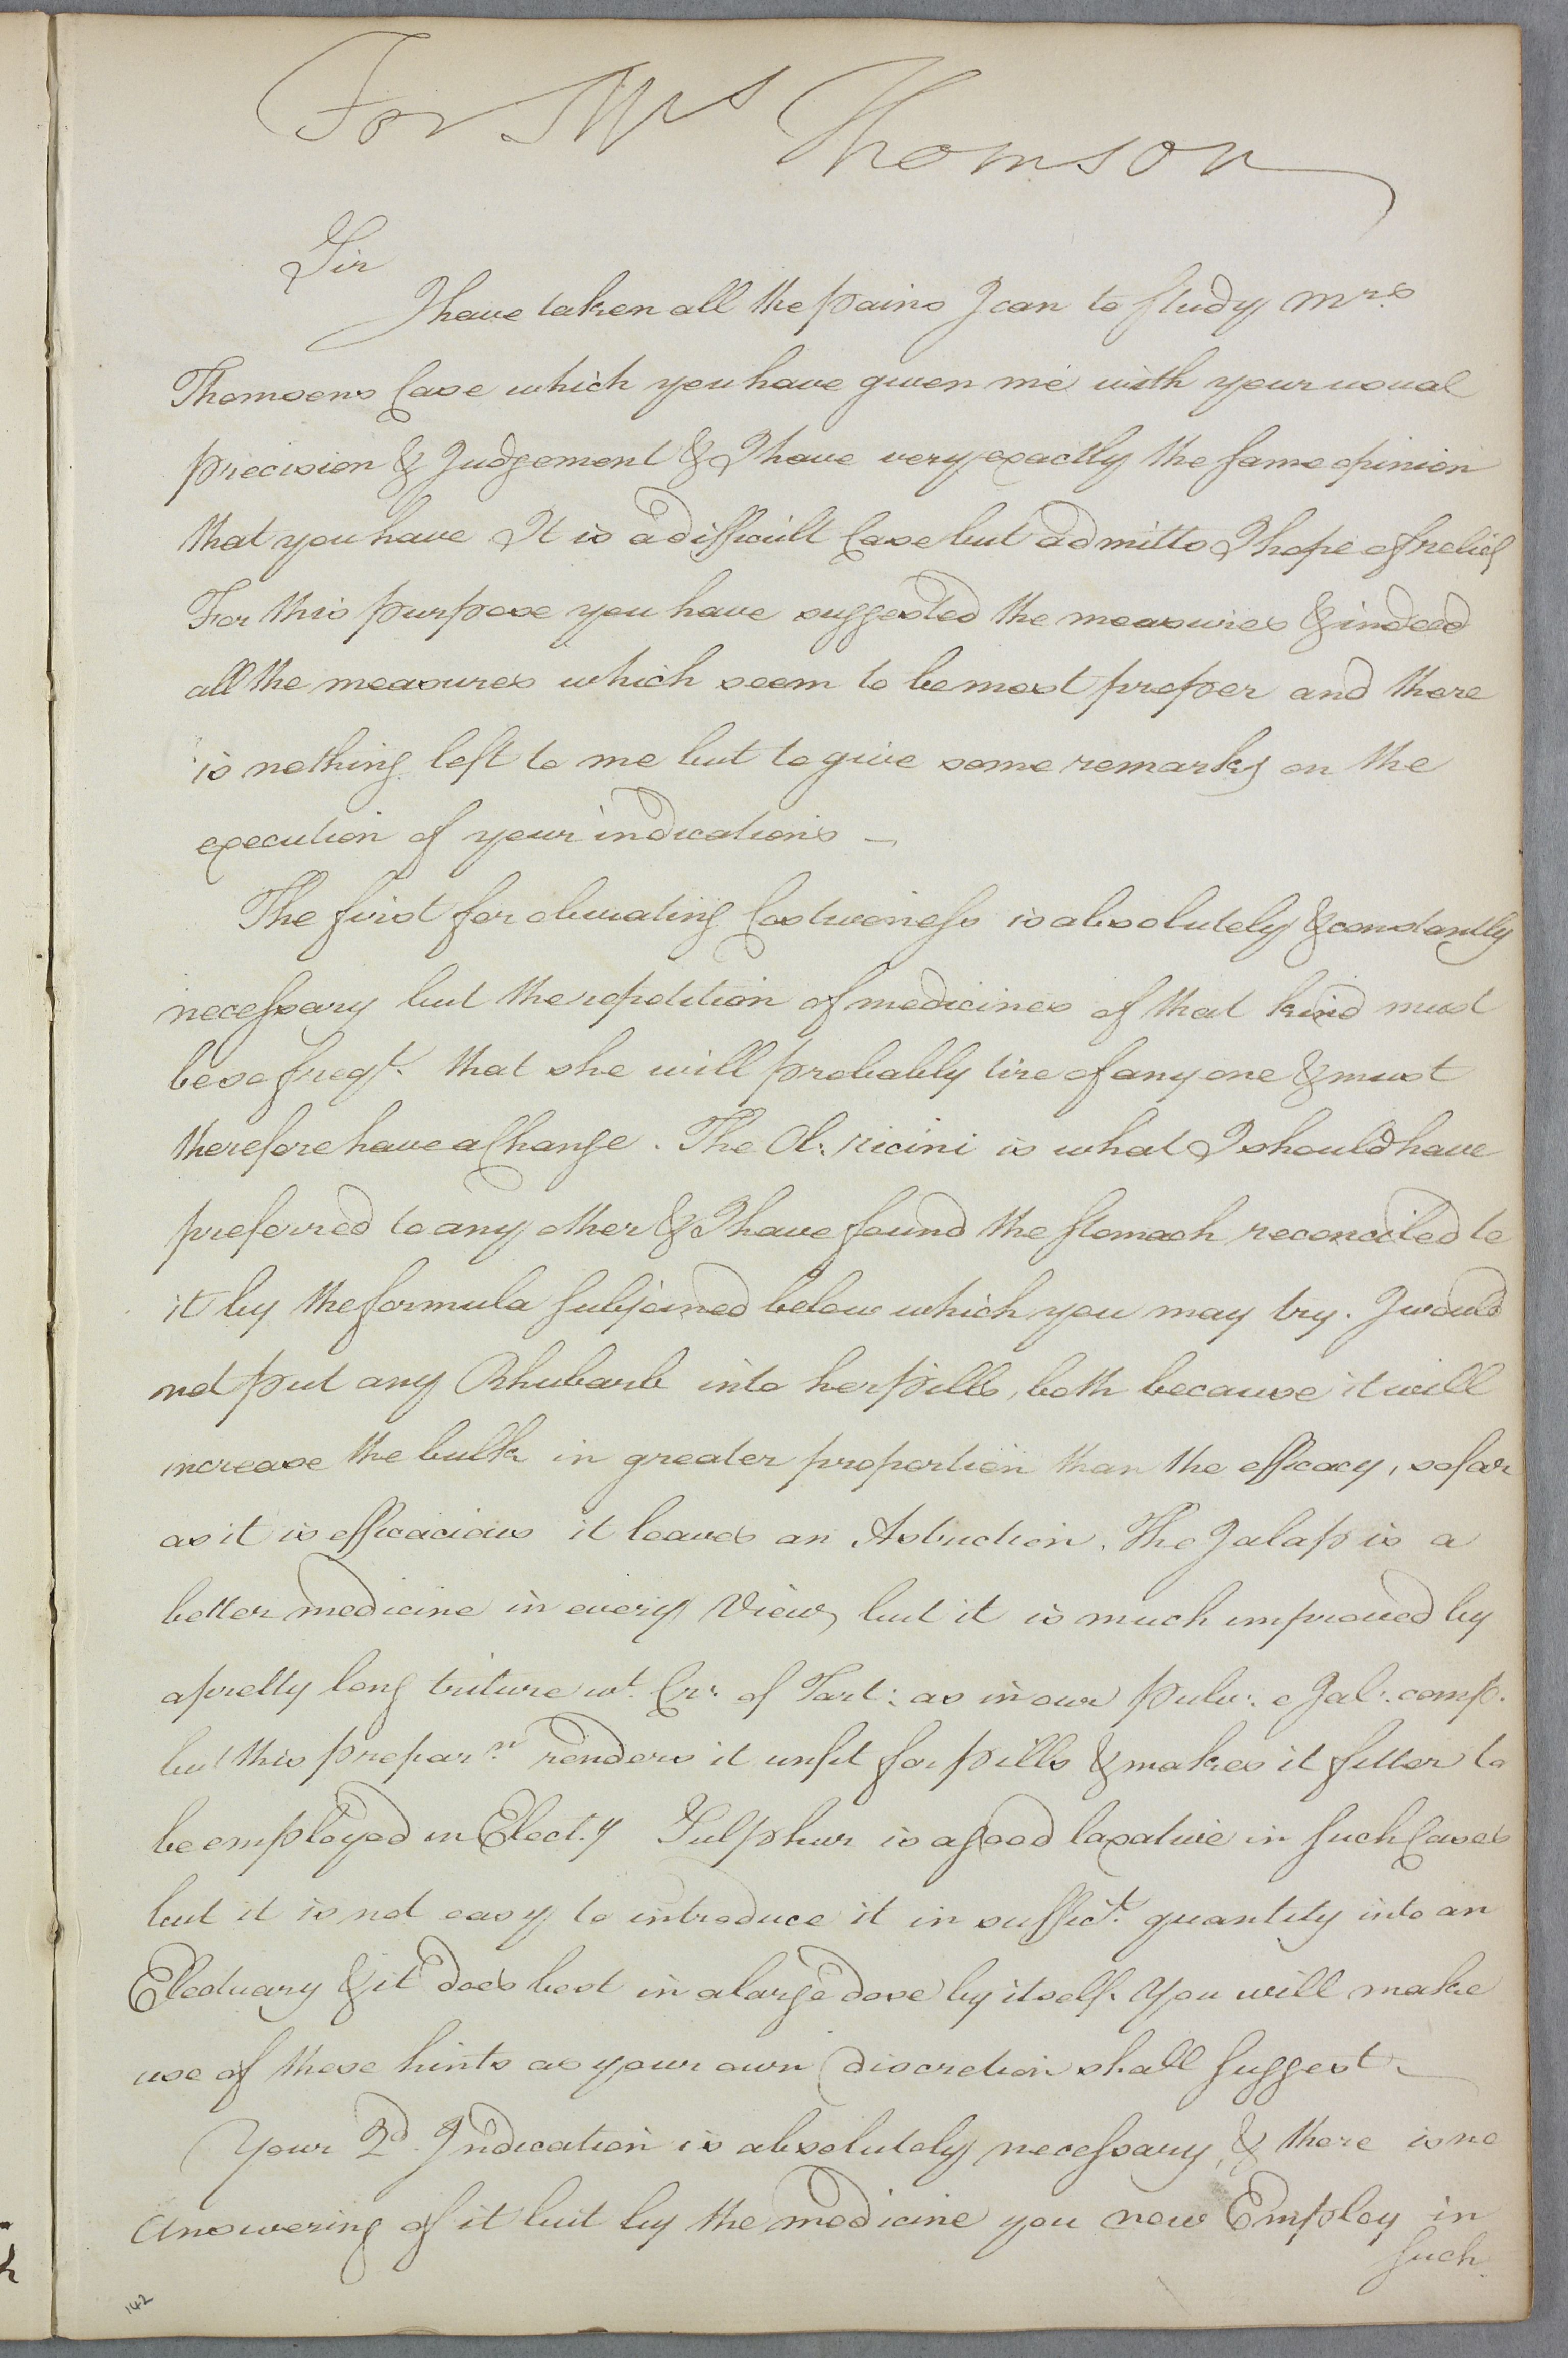 For Mrs Thomson
Sir
I have taken all the pains I can to study Mrs.
Thomsons Case which you have given me with your usual
precision & Judgement & I have very exactly the same opinion
that you have It is a difficult Case but admitts I hope of relief
For this purpose you have suggested the measures & indeed
all the measures which seem to be most proper and there
is nothing left to me but to give some remarks on the
execution of your indications —
The first for obviating Costiveness is absolutely & constantly
necessary but the repetition of medicines of that kind must
be so freqt. that she will probably tire of any one & must
therefore have a Change. The Ol: ricini is what I should have
preferred to any other & I have found the stomach reconciled to
it by the formula subjoined below which you may try. I would
not put any Rhubarb into her pills, both because it will
increase the bulk in greater proportion than the efficacy, so far
as it is efficacious it leaves an Astriction. The Jalap is a
better medicine in every View, but it is much improved by
a pretty long triture wt. Cr: of Tart: as in our pulv: e Jal: comp.
but this preparn. renders it unfit for pills & makes it fitter to
be employed in Elect.y Sulphur is a good laxative in such Cases
but it is not easy to introduce it in suffict. quantity into an
Electuary & it does best in a large dose by itself. You will make
use of these hints as your own discretion shall suggest.
Your 2d. Indication is absolutely necessary, & there is no
answering of it but by the medicine you now Employ in
such
142